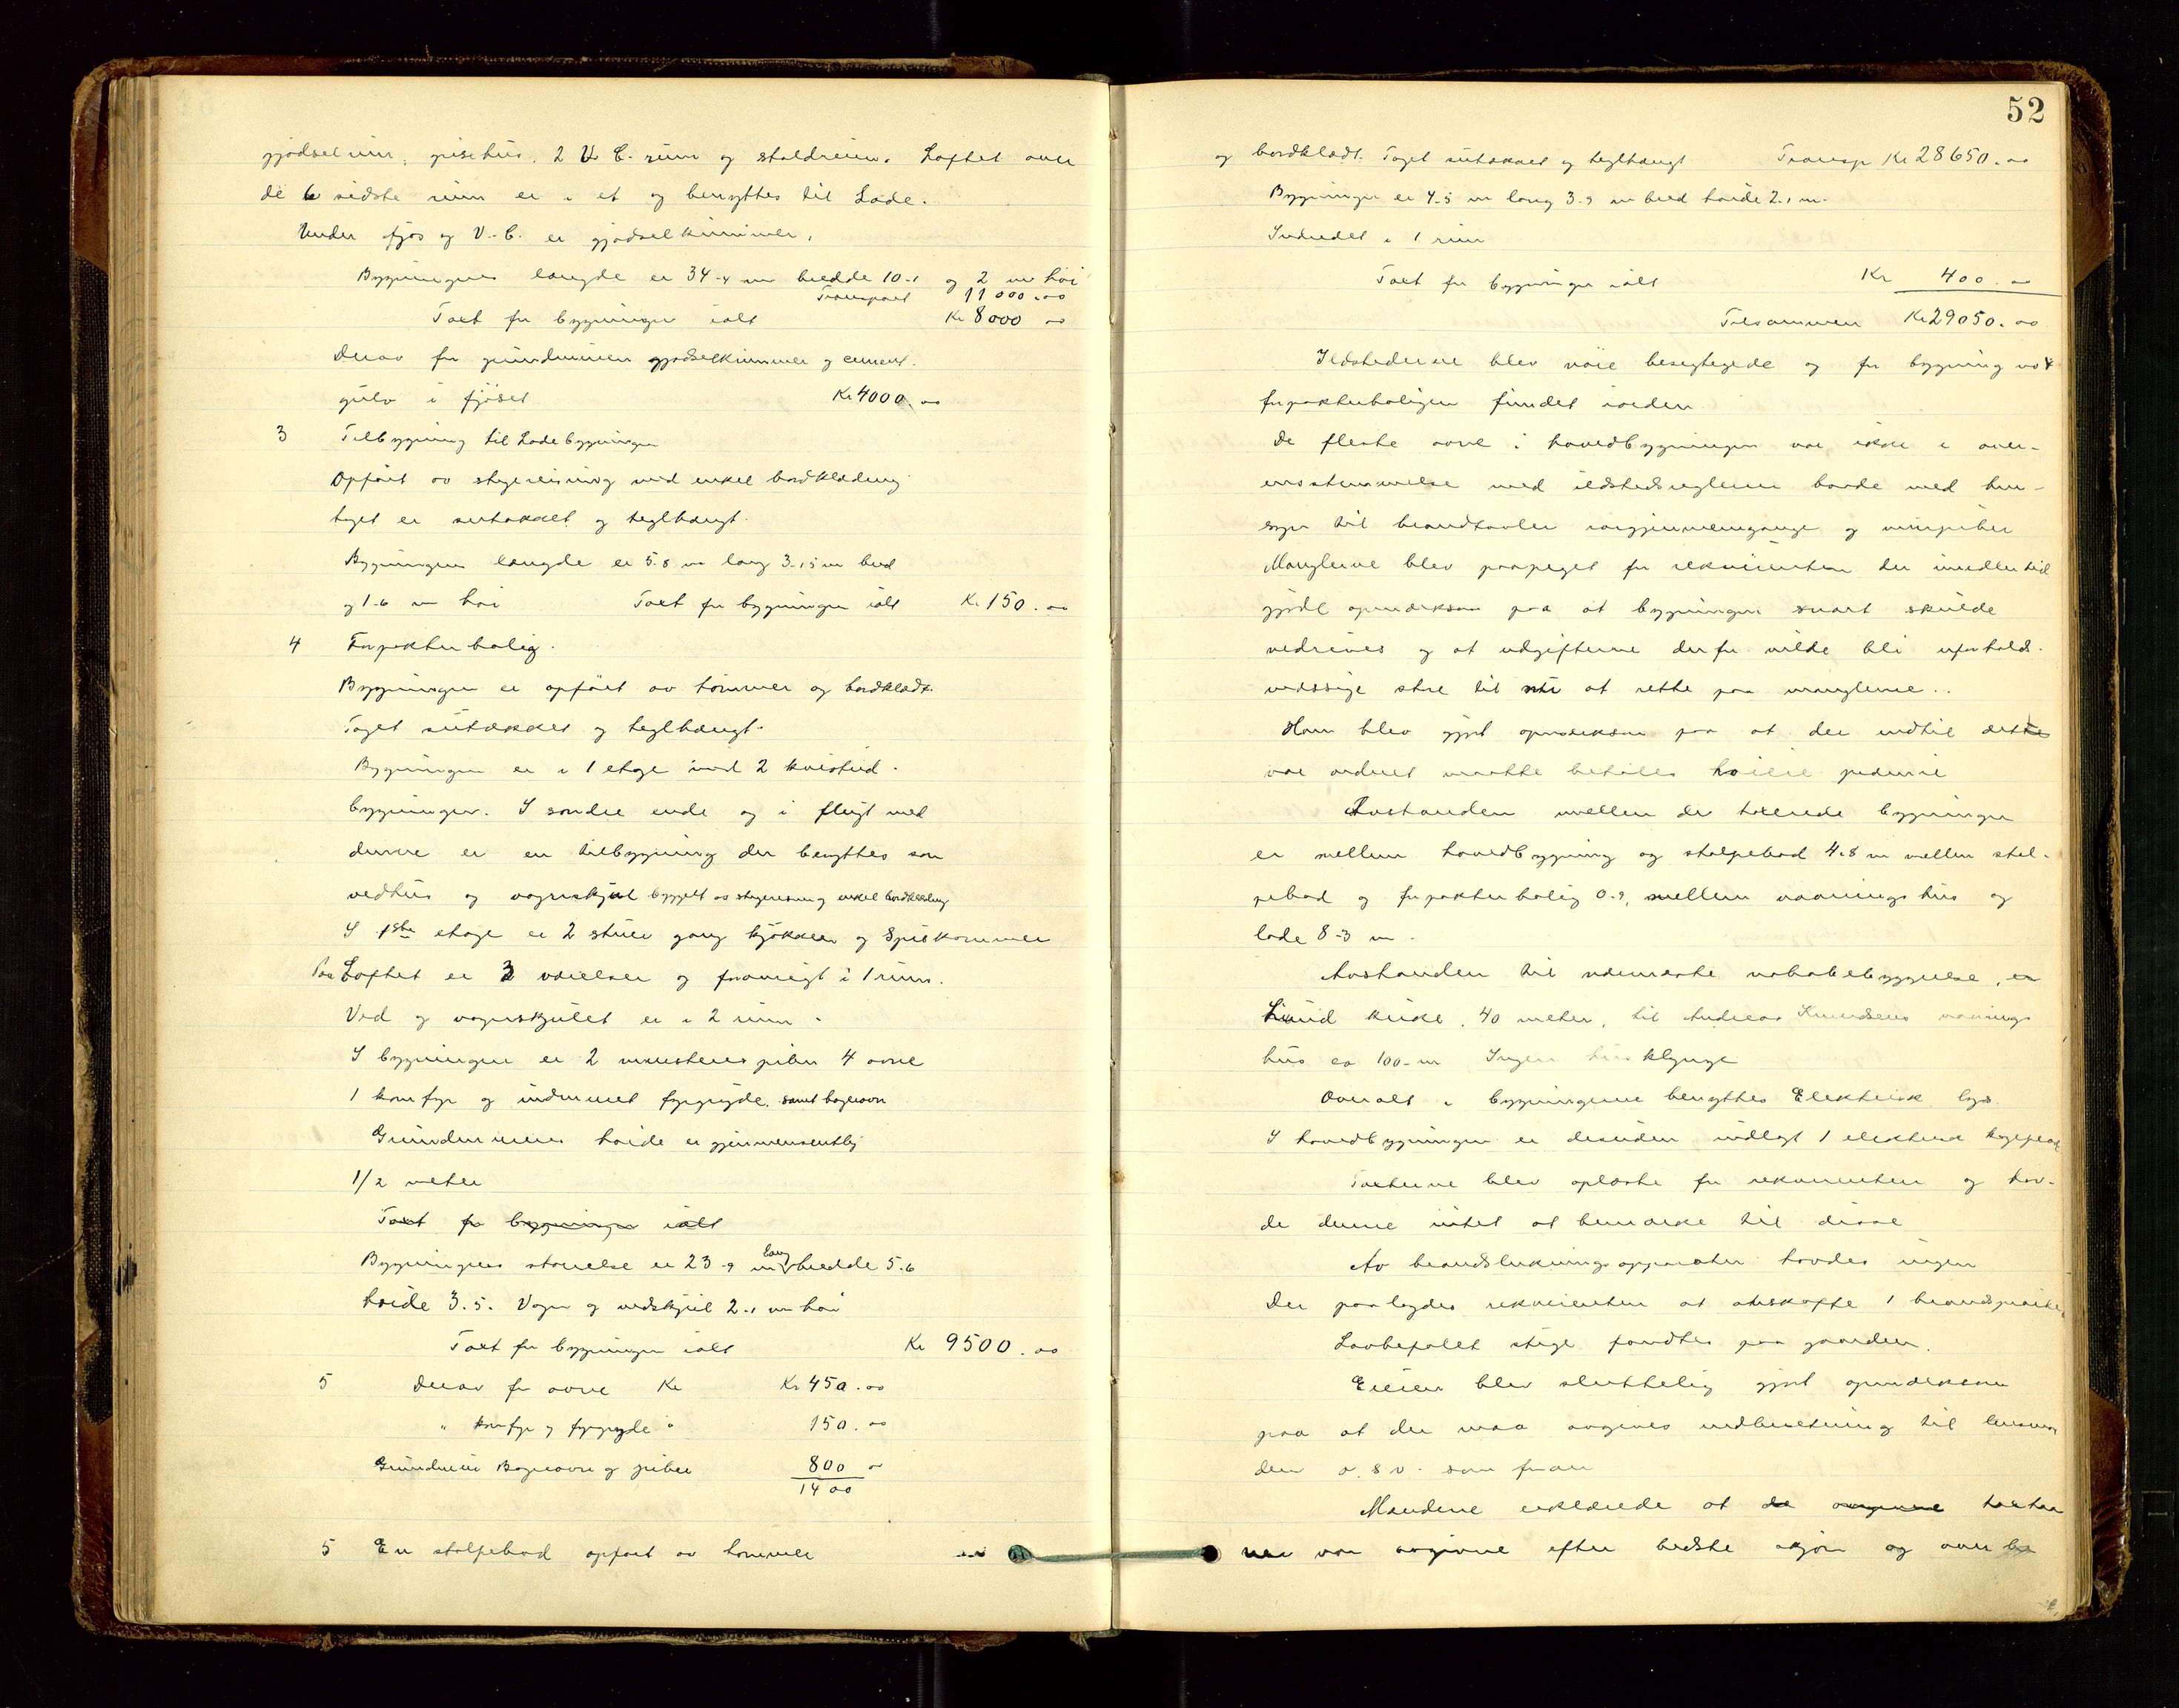 gjødselrum, grisehus, 2 V. C. rum og staldrum. Loftet over
de 6 sidste rum er i et og benyttes til Lade.
Under fjøs og V.C. er gjødselkummer.
Bygningens længde er 34-4 m bredde 10-1 og 2 m høi
Transport 11000.00
Taxt for bygningen ialt Kr 8000 00
Derav for grundmuren gjødselkummer og cement-
gulv i fjøset Kr 4000.00
3 Tilbygning til Ladebygningen
Opført av stegreisning med enkel bordklædning
taget er sutækket og teglhængt.
Bygningen længde er 5.8 m lang 3.15 m bred
og 1.6 m høi Taxt for bygningen ialt Kr 150.00
4 Forpakterbolig.
Bygningen er opført av tømmer og bordklædt.
Taget sutækket og teglhængt.
Bygningen er i 1 etage med 2 kvistud-
bygninger. I søndre ende og i flugt med
denne er en tilbygning der benyttes som
vedhus og vognskjul bygget av stegreisning enkel bordklædning
I 1ste etage er 2 stuer gang kjøkken og Spiskammer
Paa Loftet er 3 værelser og forøvrigt i 1 rum.
Ved og vognskjulet er i 2 rum.
I bygningen er 2 murstens piber 4 ovne
1 komfyr og indmuret fyrgryde, samt bagerovn
Grundmurens høide er gjennemsnitlig
1/2 meter
Taxt for bygningen ialt
Bygningens størrelse er 23-9 m lang bredde 5.6
høide 3.5. Vogn og vedskjul 2.1 m høi
Taxt for bygningen ialt Kr 9500.00
5 Derav for ovne Kr Kr 450.00
" komfyr og fyrgryde " 150.00
Grundmur Bagerovn og piber 800 00
1400
5 En stolpebod opført av tømmer
52
og bordklædt. Taget sutækket og teglhængt Transp Kr 28650.00
Bygningen er 4.5 m lang 3.9 m bred høide 2.1 m.
Indredet i 1 rum
Taxt for bygningen ialt Kr 400.00
Tilsammen Kr 29050.00
Ildstederne blev nøie besigtigede og for bygning no 4
forpakterboligen fundet iorden.
De fleste ovne i hovedbygningen var ikke i over-
ensstemmelse med ildstedsreglerne baade med hen-
syn til brandtavler rørgjennemgange og murpiber
Manglerne blev paapeget for rekvirenten der imidlertid
gjorde opmerksom paa at bygningen snart skulde
nedrives og at udgifterne derfor vilde bli uforholds-
mæssige store til at rette paa manglerne.
Han blev gjort opmerksom paa at der indtil dette
var ordnet maatte betales høiere præmie
Avstanden mellem de takserede bygninger
er mellem hovedbygning og stolpebod 4.8 m mellem stol-
pebod og forpakterbolig 0.9, mellem vaaningshus og
lade 8-3 m.
Avstanden til nærmeste nabobebyggelse, er
Lund kirke, 40 meter, til Andreas Knudsens vaanings
hus ca 100 m Ingen husklynge
Overalt i bygningerne benyttes Elektrisk lys.
I hovedbygningen er desuden indlagt 1 elektrisk kogeplade
Taxterne blev oplæste for rekvirenten og hav-
de denne intet at bemærke til disse
Av brandslukningsapparater havdes ingen
Der paalagdes rekvirenten at anskaffe 1 brandsprøite,
Lovbefalt stige fandtes paa gaarden.
Eieren blev sluttelig gjort opmerksom
paa at der maa avgives indberetning til lensman
den o. s. v. som foran
Mændene erklærede at de avgivne taxter
var avgivne efter bedste skjøn og over